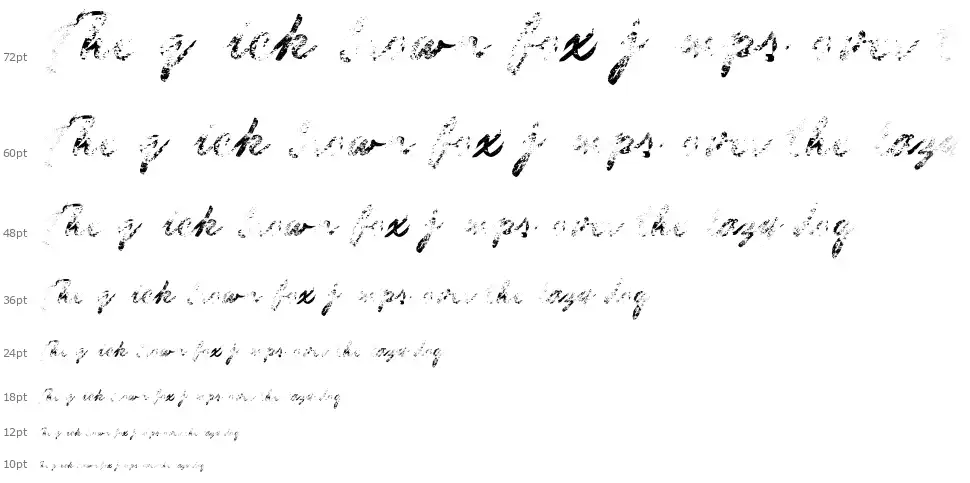 72pt The q ick brown fox j mps over t
60pt The q ick brown fox j mps over the lazy
48pt The q ick brown fox j mps over the lazy dog
36pt The q ick brown fox j mps over the lazy dog
24pt The q ick brown fox j mps over the lazy dog
18pt The q ick brown fox j mps over the lazy dog
12pt The q ick brown fox j mps over the lazy dog
10pt The q ick brown fox j mps over the lazy dog